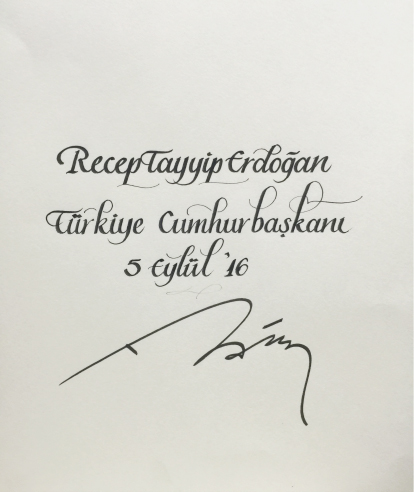 Recep Tayyip Erdoğan
Türkiye Cumhurbaşkanı
5 Eylül '16